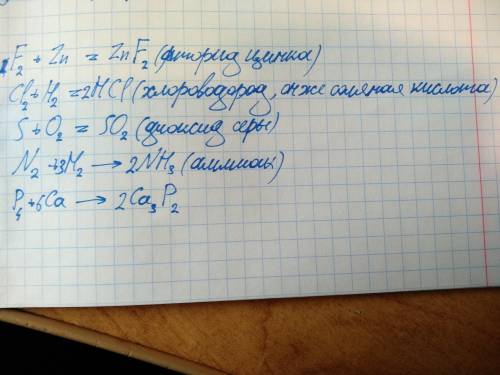 F₂ + Zn = ZnF₂ (фторид цинка)
Cl₂ + H₂ = 2HCl (хлороводород, он же соляная кислота)
S + O₂ = SO₂ (диоксид серы)
N₂ + 3H₂ → 2NH₃ (аммиак)
P₄ + 6Ca → 2Ca₃P₂